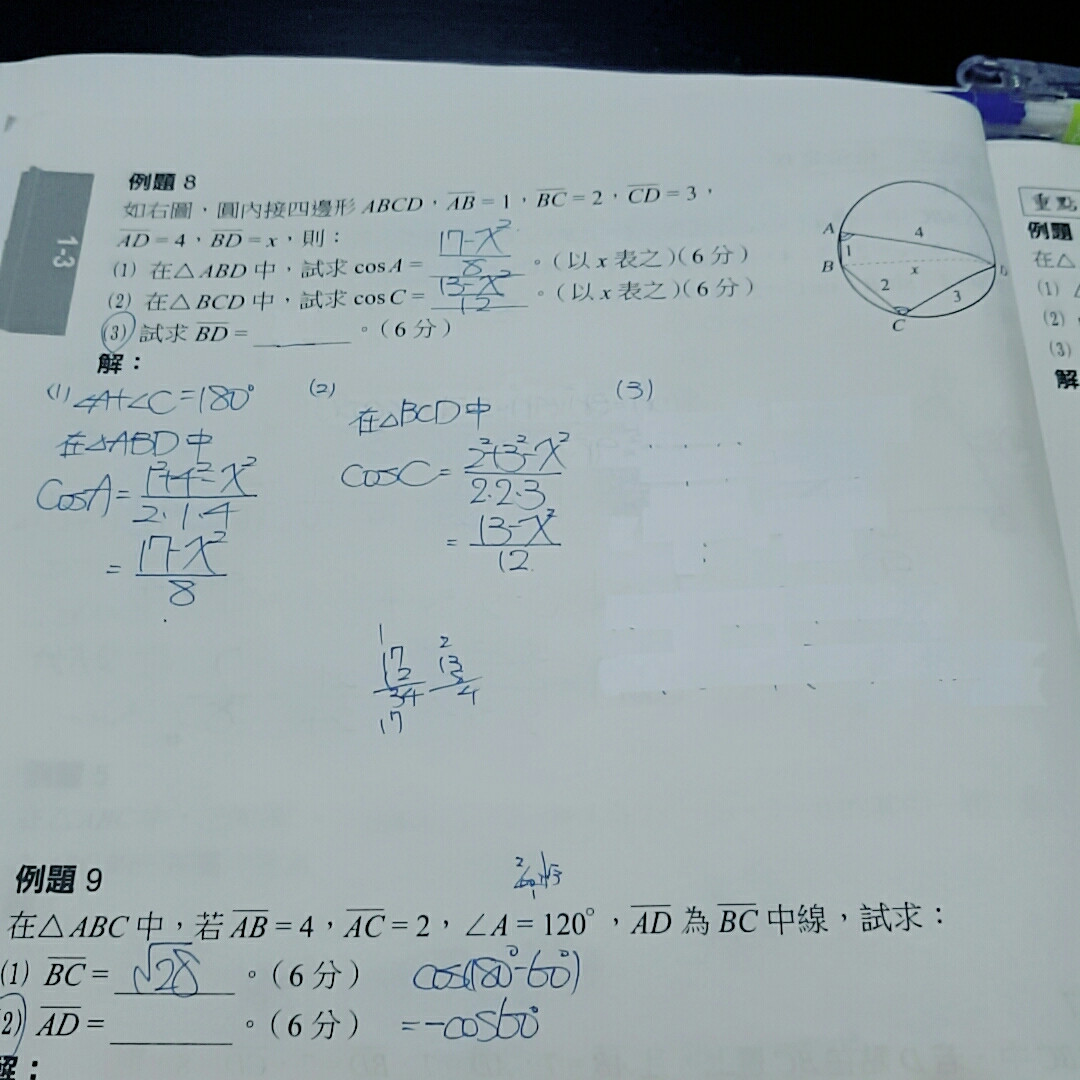 1-3
例題 8
如右圖，圓內接四邊形 ABCD，AB = 1，BC = 2，CD = 3，
AD = 4，BD = x，則：
(1) 在△ABD 中，試求 cosA = 17-x²/8 。(以 x 表之)(6 分)
(2) 在△BCD 中，試求 cosC = 13-x²/12 。(以 x 表之)(6 分)
(3) 試求 BD = ______ 。(6 分)
A
4
1
B
x
2
3
C
解：
(1) ∠A+∠C=180°
在△ABD中
cosA = 1²+4²-x²/2·1·4
= 17-x²/8
(2)
在△BCD中
cosC = 2²+3²-x²/2·2·3
= 13-x²/12
(3)
1
17
2
34
17
2
13
4
例題 9
在△ABC 中，若 AB = 4，AC = 2，∠A = 120°，AD 為 BC 中線，試求：
(1) BC = √28 。(6 分)
cos(180°-60°)
(2) AD = ______ 。(6 分)
= -cos60°
解：
重點
例題
在△
(1)
(2)
(3)
解